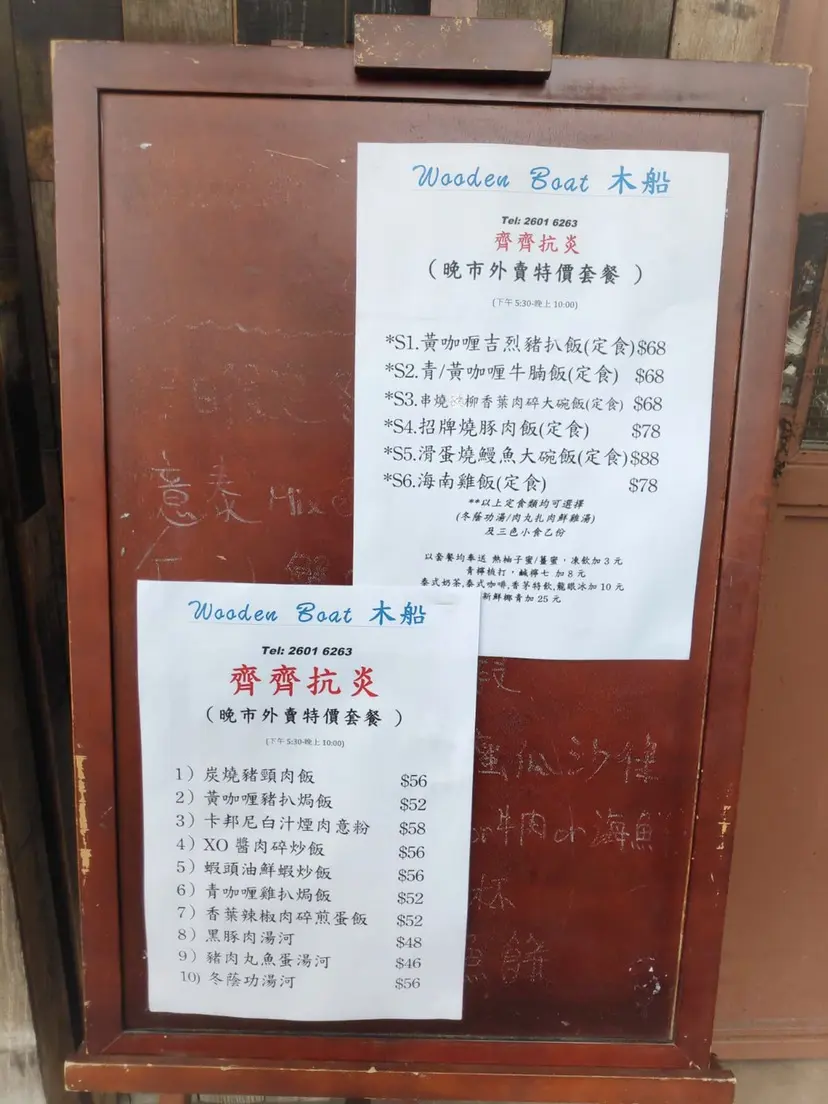 Wooden Boat 木船
Tel: 2601 6263
齊齊抗炎
(晚市外賣特價套餐 )
(下午 5:30-晚上 10:00)
*S1.黃咖喱吉烈豬扒飯(定食)$68
*S2.青/黃咖喱牛腩飯(定食) $68
*S3.串燒 柳香葉肉碎大碗飯(定食) $68
*S4.招牌燒豚肉飯(定食) $78
*S5.滑蛋燒鰻魚大碗飯(定食)$88
*S6.海南雞飯(定食) $78
**以上定食類均可選擇
(冬蔭功湯/肉丸扎肉鮮雞湯)
及三色小食乙份
以套餐均奉送 熱柚子蜜/薑蜜，凍飲加 3 元
青檸梳打，鹹檸七 加 8 元
泰式奶茶,泰式咖啡,香茅特飲,龍眼冰加 10 元
新鮮椰青加 25 元
Wooden Boat 木船
Tel: 2601 6263
齊齊抗炎
(晚市外賣特價套餐 )
(下午 5:30-晚上 10:00)
1) 炭燒豬頸肉飯 $56
2) 黃咖喱豬扒焗飯 $52
3) 卡邦尼白汁煙肉意粉 $58
4) XO 醬肉碎炒飯 $56
5) 蝦頭油鮮蝦炒飯 $56
6) 青咖喱雞扒焗飯 $52
7) 香葉辣椒肉碎煎蛋飯 $52
8) 黑豚肉湯河 $48
9) 豬肉丸魚蛋湯河 $46
10) 冬蔭功湯河 $56
意泰 Mix
瓜沙律
or牛肉 or 海鮮
杯